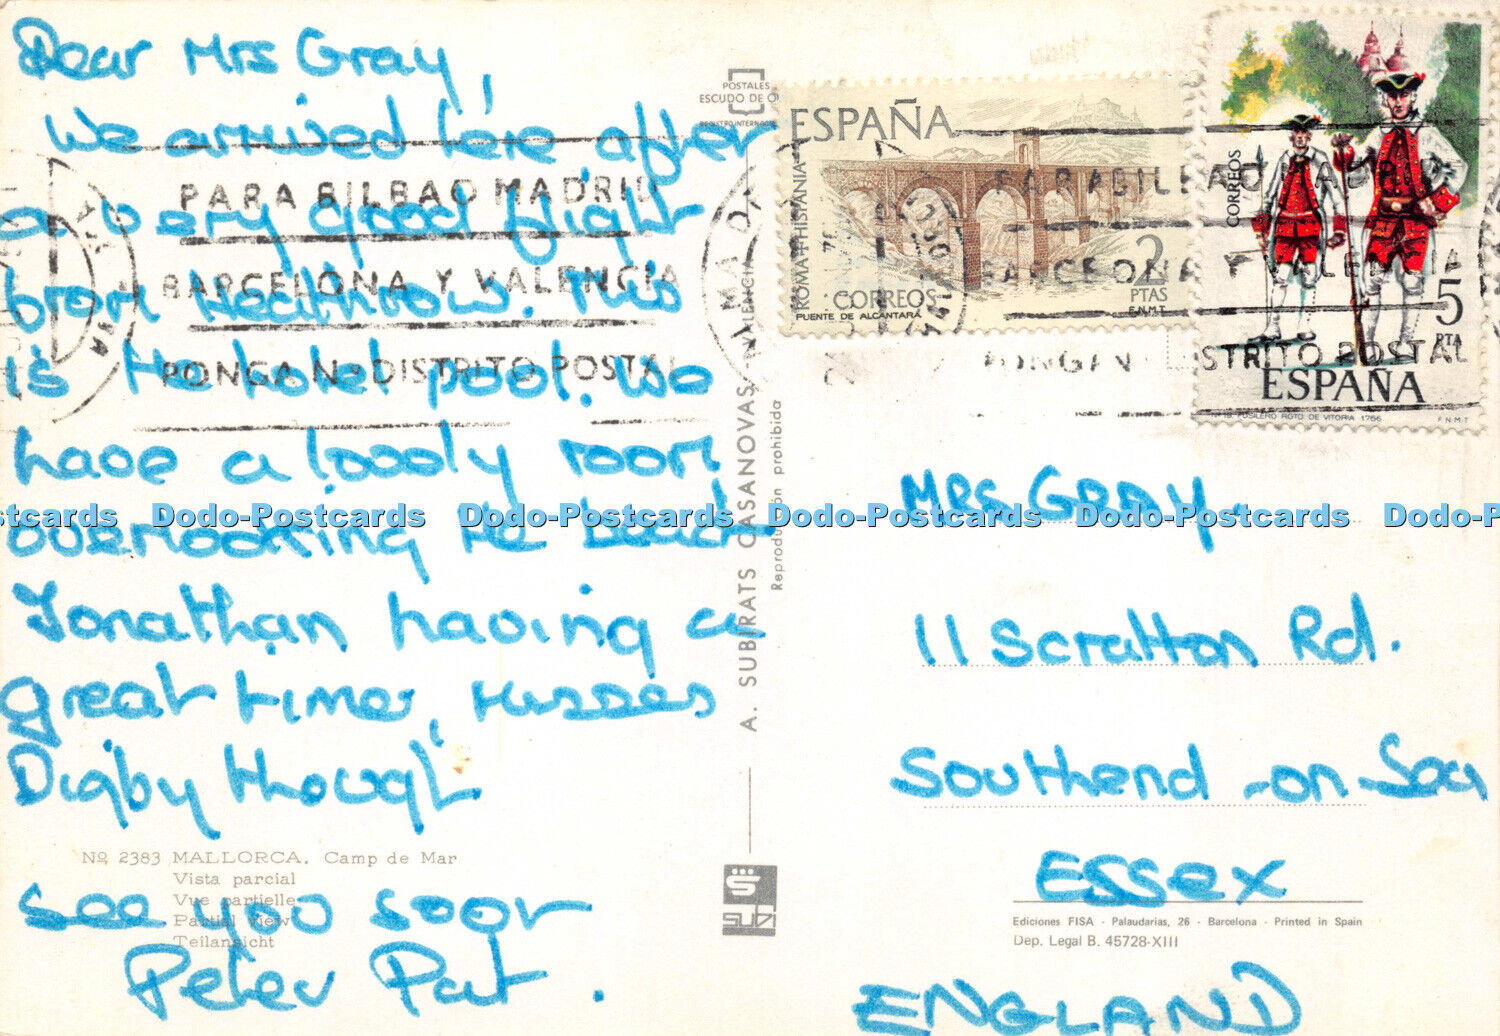 Dear Mrs Gray,
We arrived here after
a very good flight
from Heathrow. This
is the hotel pool. We
have a lovely room
overlooking the beach
Jonathan having a
great time, misses
Digby though.
See you soon
Peter Pat.
Mrs. GRAY.
11 Scratton Rd.
Southend-on-Sea
ESSEX
ENGLAND
POSTALES
ESCUDO DE O
ESPAÑA
ROMA+HISPANIA
CORREOS
2
PTAS
F.N.M.T.
PUENTE DE ALCANTARA
CORREOS
5
PTA
ESPAÑA
Nº 19 FUSILERO RGTO DE VITORIA 1766
F.N.M.T
PARA BILBAO MADRID
BARCELONA Y VALENCIA
PONGAN DISTRITO POSTAL
PARA BILBAO
BARCELONA Y VALENCIA
PONGAN DISTRITO POSTAL
A. SUBIRATS CASANOVAS. - VALENCIA
Reproducción prohibida
Nº 2383 MALLORCA. Camp de Mar
Vista parcial
Vue partielle
Partial view
Teilansicht
SUBI
Ediciones FISA - Palaudarias, 26 - Barcelona - Printed in Spain
Dep. Legal B. 45728-XIII
stcards Dodo-Postcards Dodo-Postcards Dodo-Postcards Dodo-Postcards Dodo-P